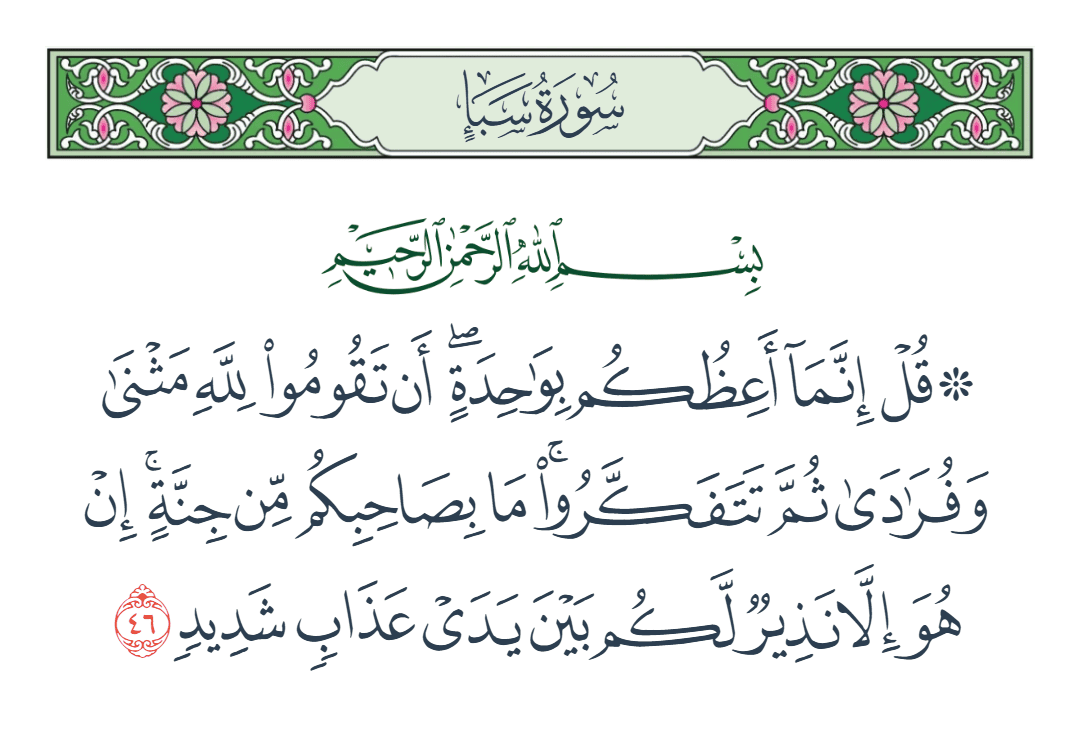 سُورَةُ سَبَإٍ
بِسۡمِ ٱللَّهِ ٱلرَّحۡمَٰنِ ٱلرَّحِيمِ
۞ قُلۡ إِنَّمَآ أَعِظُكُم بِوَٰحِدَةٍۖ أَن تَقُومُواْ لِلَّهِ مَثۡنَىٰ
وَفُرَٰدَىٰ ثُمَّ تَتَفَكَّرُواْۚ مَا بِصَاحِبِكُم مِّن جِنَّةٍۚ إِنۡ
هُوَ إِلَّا نَذِيرٞ لَّكُم بَيۡنَ يَدَيۡ عَذَابٖ شَدِيدٖ ٤٦